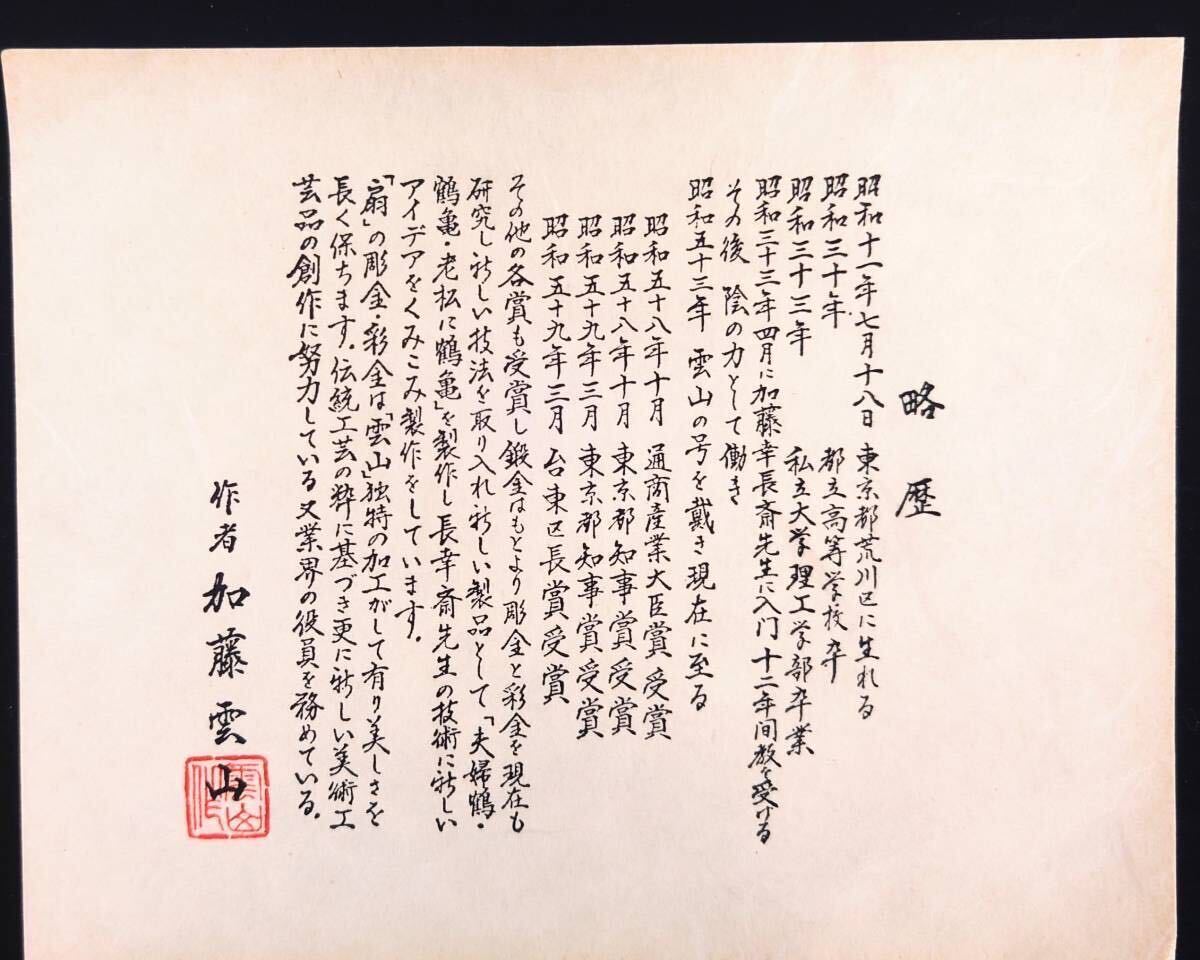 略歴
昭和十一年七月十八日 東京都荒川区に生れる
昭和三十年 都立高等学校卒
昭和三十三年 私立大学理工学部卒業
昭和三十三年四月に加藤幸長斎先生に入门十二年间教を受ける
その後 陰の力として働き
昭和五十三年 雲山の号を戴き現在に至る
昭和五十八年十月 通商産業大臣賞受賞
昭和五十八年十月 東京都知事賞受賞
昭和五十九年三月 東京都知事賞受賞
昭和五十九年三月 台東区長賞受賞
その他の各賞も受賞し鍛金はもとより彫金と彩金を現在も
研究し新しい技法を取り入れ新しい製品として「夫婦鶴・
鶴亀・老松に鶴亀」を製作し長幸斎先生の技術に新しい
アイデアをくみこみ製作をしています。
「扇」の彫金・彩金は「雲山」独特の加工がして有り美しさを
長く保ちます。伝統工芸の粋に基づき更に新しい美術工
芸品の創作に努力している又業界の役員を務めている。
作者 加藤雲山